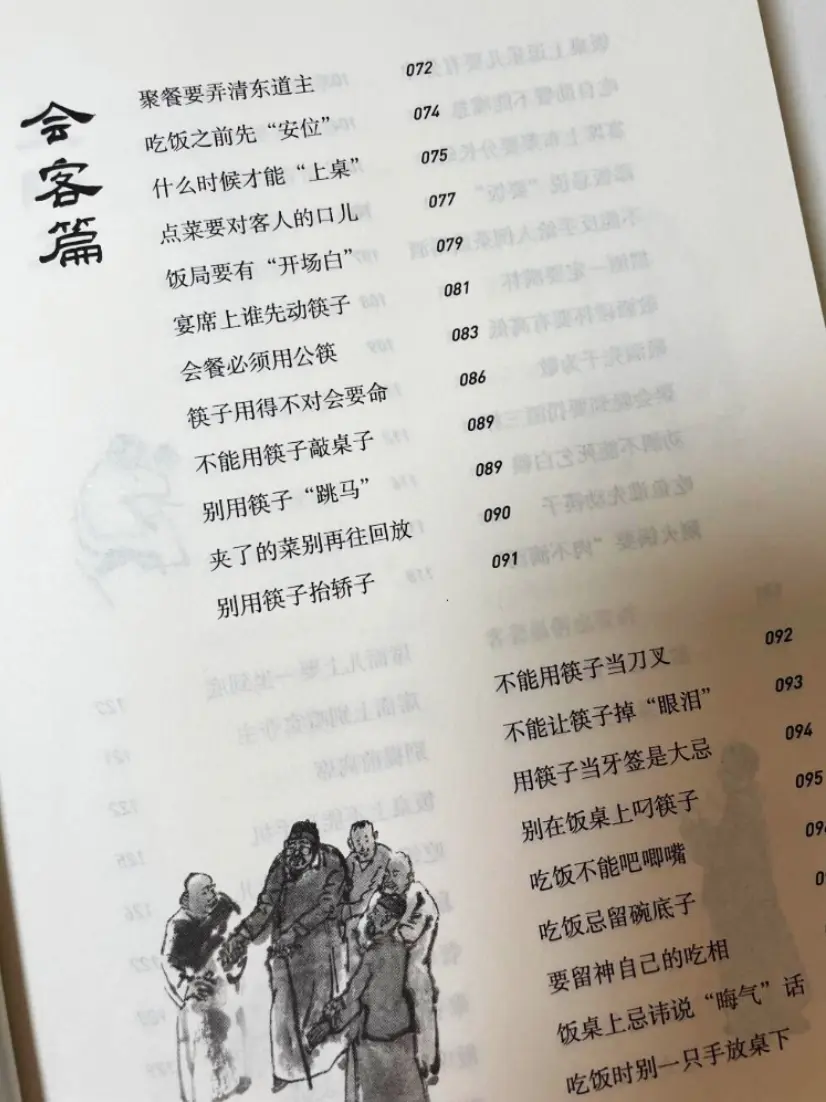 会客篇
聚餐要弄清东道主 072
吃饭之前先“安位” 074
什么时候才能“上桌” 075
点菜要对客人的口儿 077
饭局要有“开场白” 079
宴席上谁先动筷子 081
会餐必须用公筷 083
筷子用得不对会要命 086
不能用筷子敲桌子 089
别用筷子“跳马” 089
夹了的菜别再往回放 090
别用筷子抬轿子 091
不能用筷子当刀叉 092
不能让筷子掉“眼泪” 093
用筷子当牙签是大忌 094
别在饭桌上叼筷子 095
吃饭不能吧唧嘴
吃饭忌留碗底子
要留神自己的吃相
饭桌上忌讳说“晦气”话
吃饭时别一只手放桌下